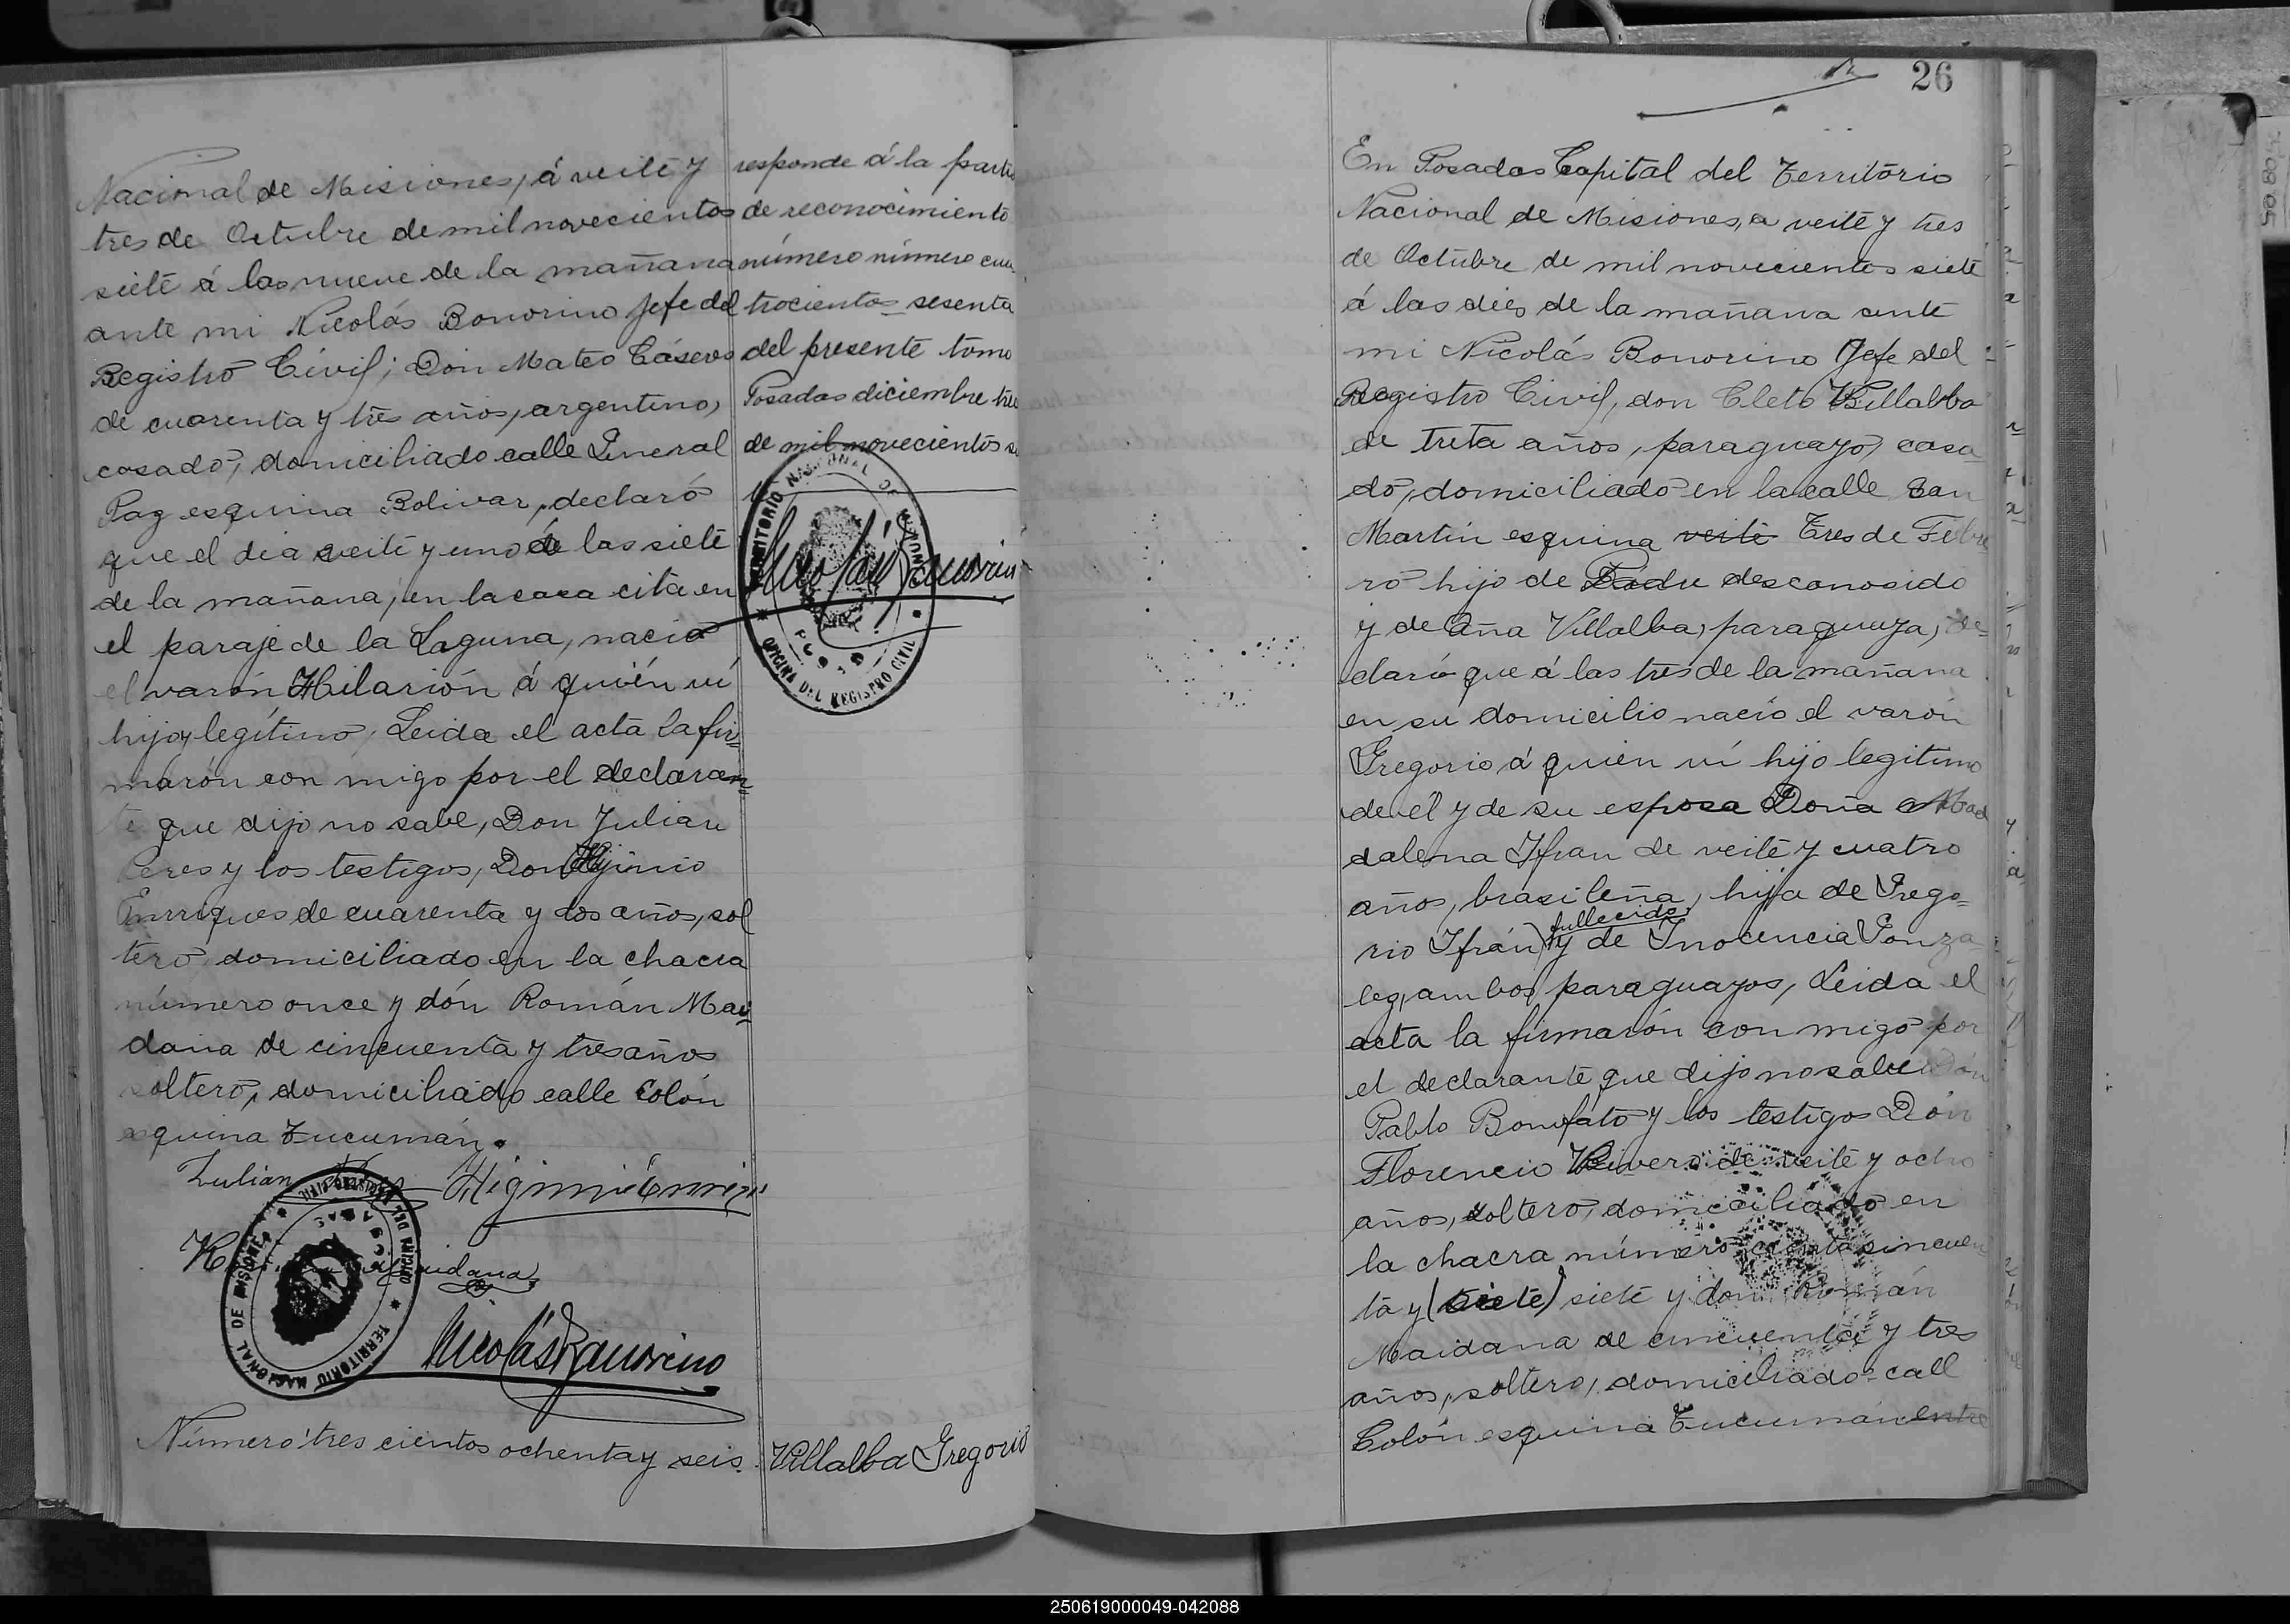 Nacional de Misiones, á veité y
tres de Octubre de mil novecientos
siete á las nueve de la mañana
ante mi Nicolás Bonorino Jefe del
Registro Civil; Don Mateo Cáseres
de cuarenta y tres años, argentino,
casado, domiciliado calle General
Paz esquina Bolivar, declaró
que el dia veite y uno á las siete
de la mañana, en la casa cita en
el paraje de la Laguna, nació
el varón Hilarión á quién ví
hijo legítimo, Leida el acta la fir=
marón con migo por el declaran=
te que dijo no sabe, Don Julian
Ceres y los testigos, Don Hijinio
Enrriques de cuarenta y dos años, sol
tero, domiciliado en la chacra
número once y dón Román Mai=
dana de cincuenta y tres años
soltero, domiciliado calle Colón
esquina Tucumán.
Julian
Higinio Enrriqe
Maidana
Nicolás Bonorino
OFICINA DEL REGISTRO CIVIL
TERRITORIO NACIONAL DE MISIONES
POSADAS
Número tres cientos ochenta y seis.
responde á la parti
de reconocimiento
número número cua
trocientos sesenta
del presente tomo
Posadas diciembre tre
de mil novecientos si
TERRITORIO NACIONAL DE MISIONES
OFICINA DEL REGISTRO CIVIL
Nicolás Bonorino
Villalba Gregorio
26
En Posadas Capital del Território
Nacional de Misiones, a veité y tres
de Octubre de mil novecientos siete
á las dies de la mañana ante
mi Nicolás Bonorino Jefe del
Registro Civil, don Cleto Villalba
de treta años, paraguayo, casa
do, domiciliado en la calle San
Martín esquina veité Tres de Febre
ro hijo de Padre desconosido
y de Ana Villalba, paraguaya, de=
claró que á las tres de la mañana
en su domicilio nació el varón
Gregorio á quien ví hijo legitimo
de él y de su esposa Doña Mad
dalena Ifran de veité y cuatro
años, brasileña, hija de Grego=
fullecido
rio Ifrán y de Inocencia Gonza
lez, ambos paraguayos, Leida el
acta la firmarón con migo por
el declarante que dijo no sabe Dón
Pablo Bonifato y los testigos Dón
Florencio Rivero de veité y ocho
años, soltero, domiciliado en
la chacra número sincuen
ta y (siete) siete y don Román
Maidana de cincuenta y tres
años, soltero, domiciliado call
Colón esquina Tucumán entre
250619000049-042088